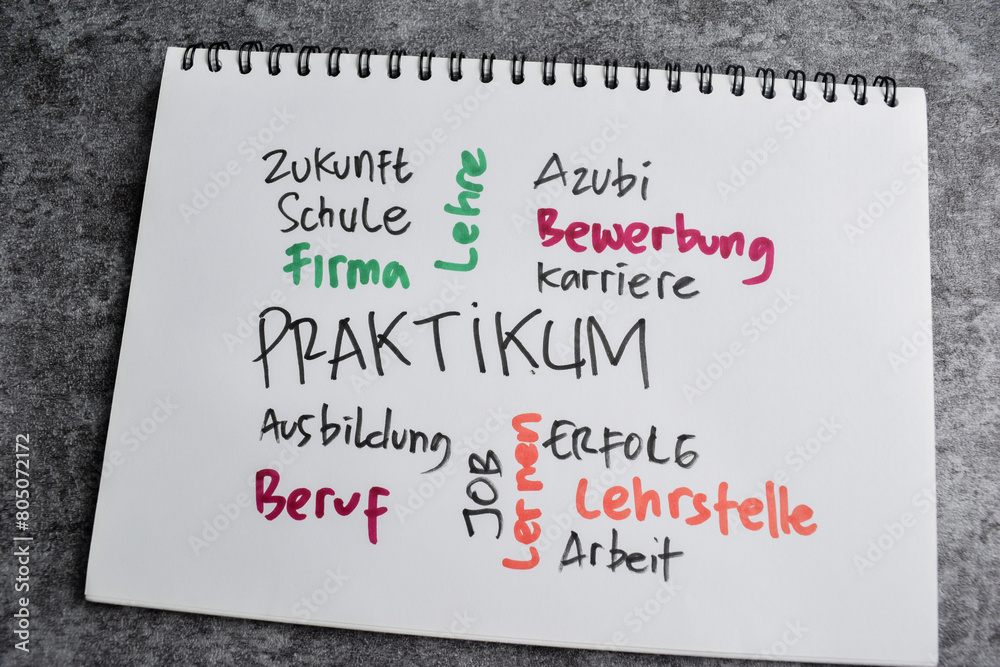 Zukunft
Schule
Firma
Lehre
Azubi
Bewerbung
Karriere
PRAKTIKUM
Ausbildung
Beruf
JOB
Lernen
ERFOLG
Lehrstelle
Arbeit
Adobe Stock | #805072172